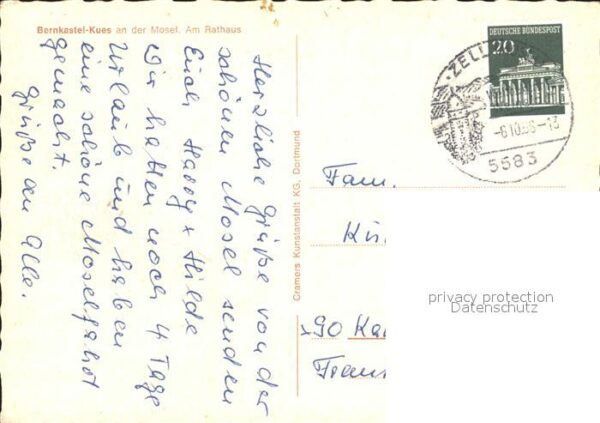 Bernkastel-Kues an der Mosel. Am Rathaus
Herzliche Grüße von der
schönen Mosel senden
Euch Harry + Hilde
Wir hatten noch 4 Tage
Urlaub und haben
eine schöne Moselfahrt
gemacht.
Grüße an Alle.
Cramers Kunstanstalt KG, Dortmund
DEUTSCHE BUNDESPOST
20
ZELL
-6.10.66-13
5583
Fam.
privacy protection
Datenschutz